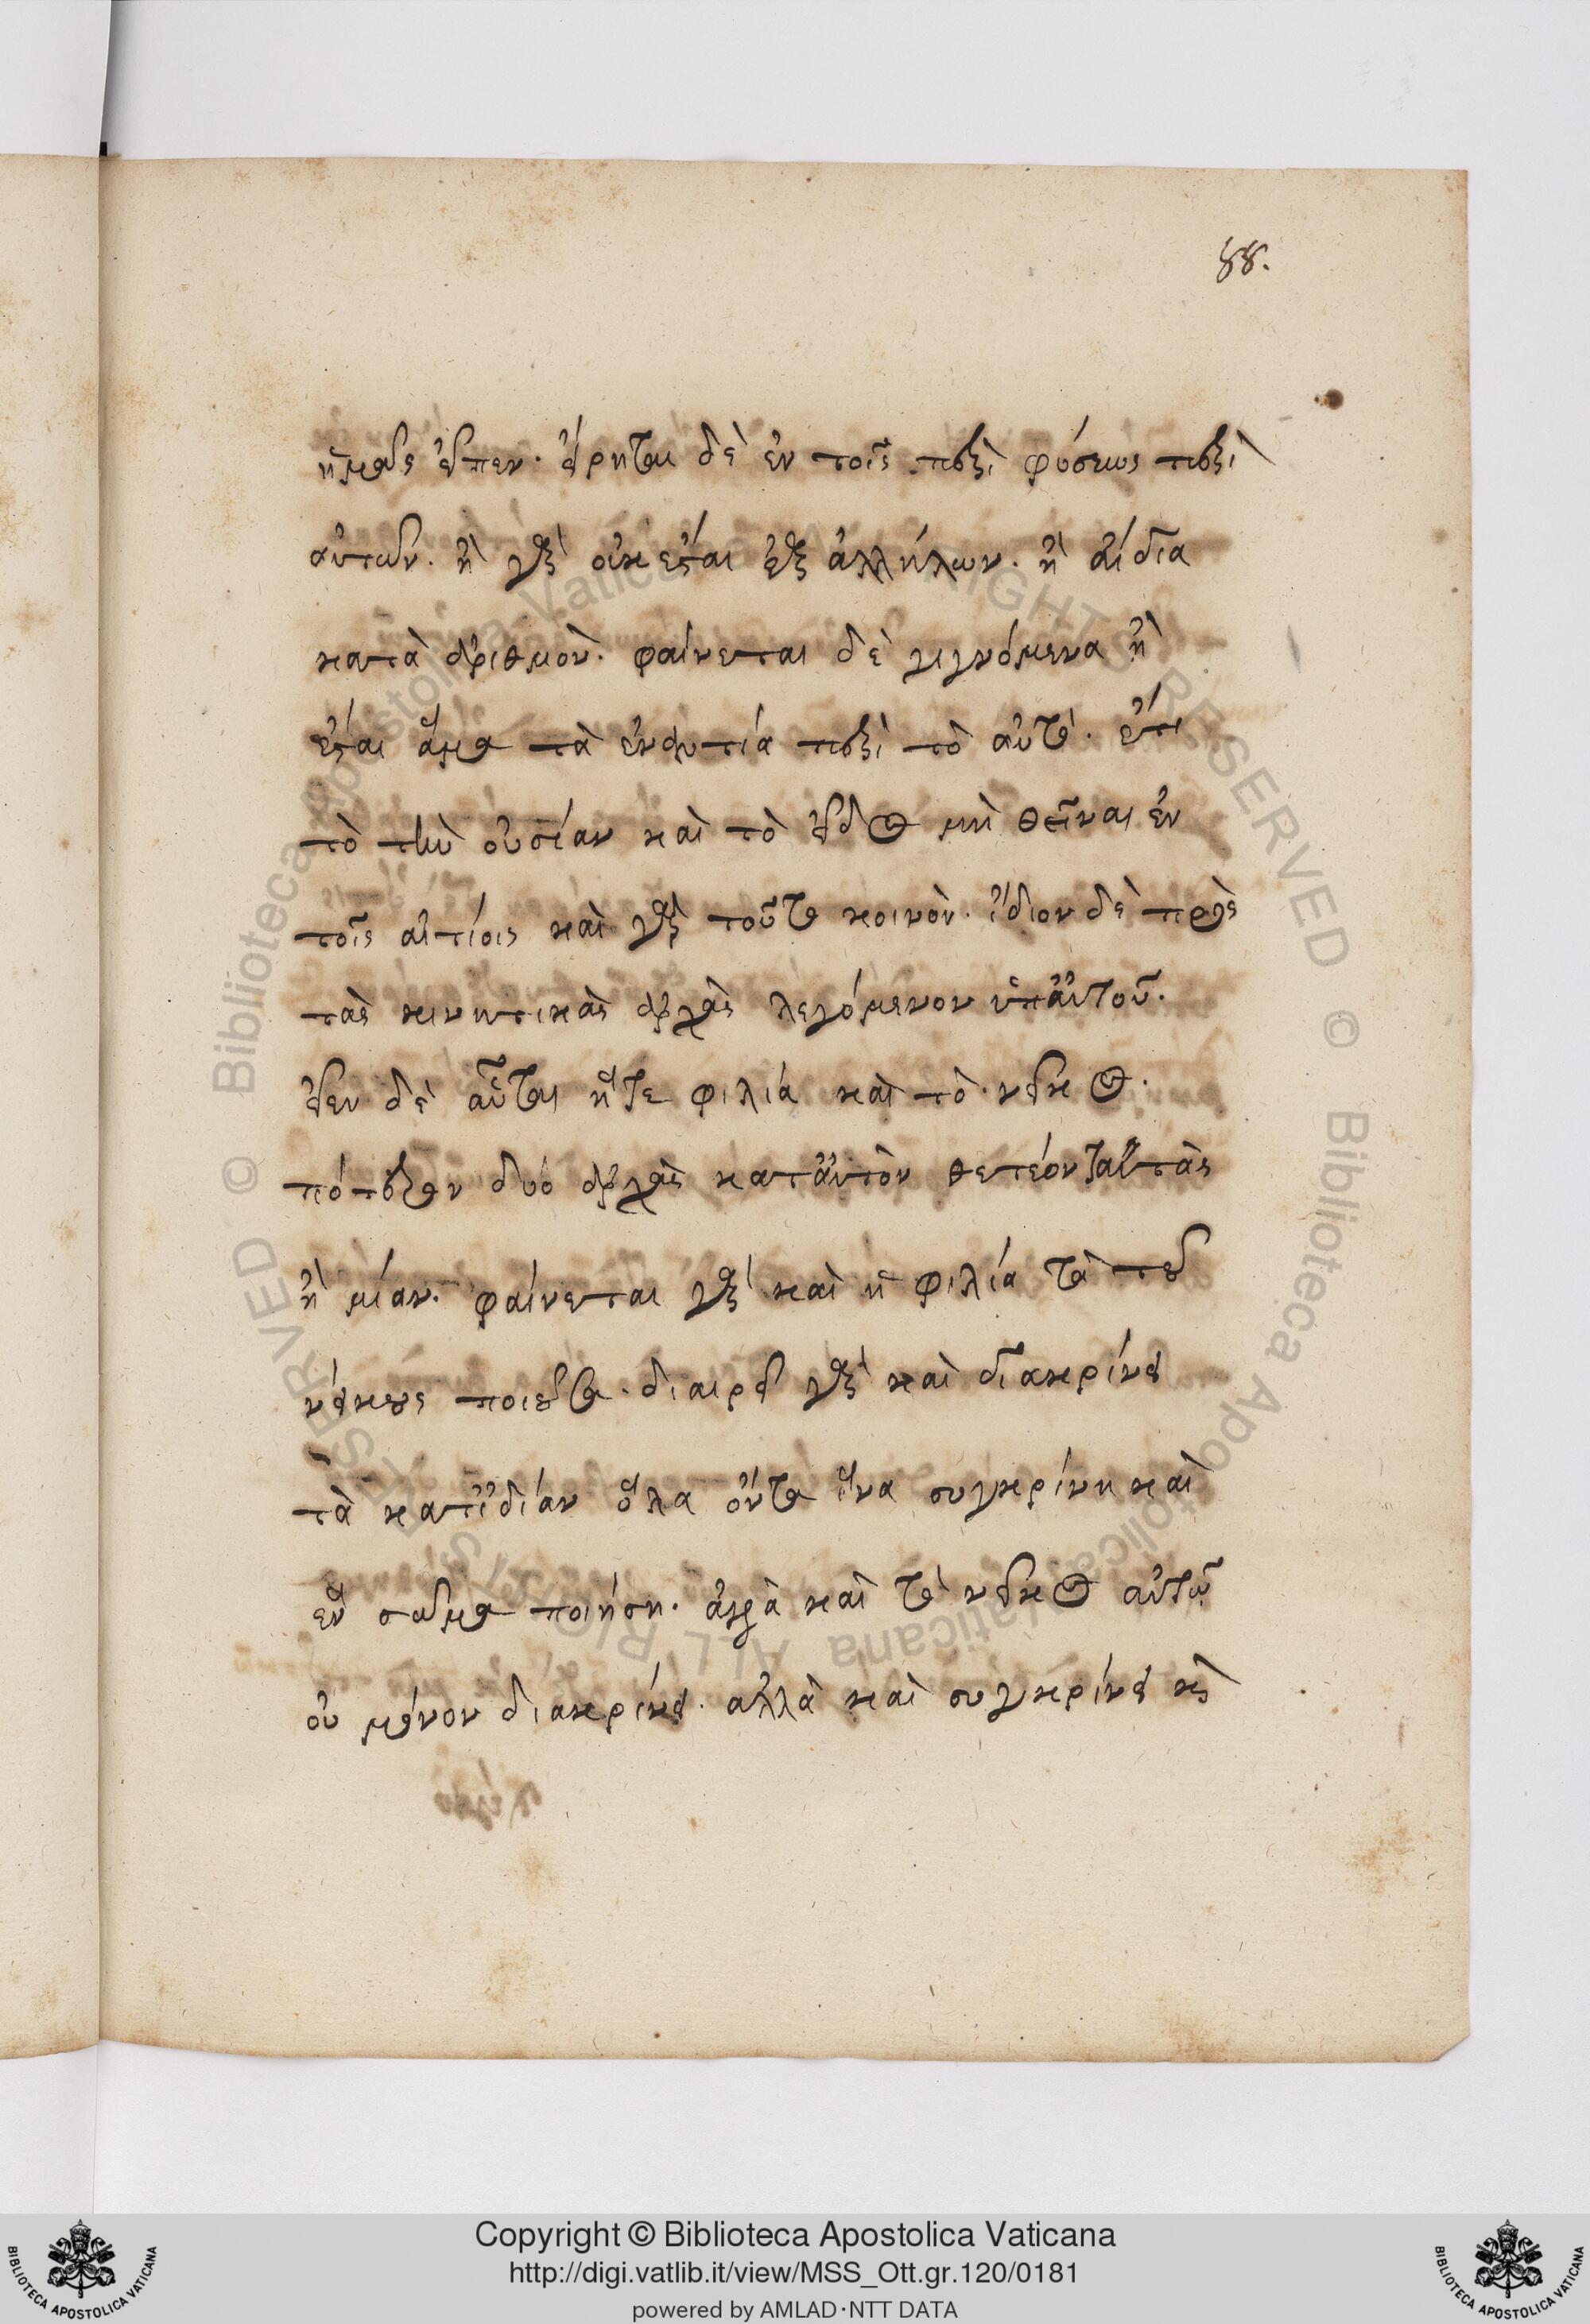 88.
ἡμεῖς εἶπεν. εἴρηται δὲ ἐν τοῖς περὶ φύσεως περὶ
αὐτῶν. ἢ γὰρ οὐκ ἔσται ἐξ ἀλλήλων. ἢ ἀίδια
κατὰ ἀριθμὸν. φαίνεται δὲ γιγνόμενα ἢ
ἔσται ἅμα τὰ ἐναντία περὶ τὸ αὐτὸ. ἔτι
τὸ τὴν οὐσίαν καὶ τὸ εἶδος μὴ θεῖναι ἐν
τοῖς αἰτίοις καὶ γὰρ τοῦτο κοινὸν. ἴδιον δὲ πρὸς
τὰς κινητικὰς ἀρχὰς λεγόμενον ὑπ' αὐτοῦ.
εἶεν δὲ αὗται ἥτε φιλία καὶ τὸ νεῖκος.
πότερον δύο ἀρχὰς κατ' αὐτὸν θετέον ταύτας
ἢ μίαν. φαίνεται γὰρ καὶ ἡ φιλία τὰ τοῦ
νείκους ποιοῦσα. διαιρεῖ γὰρ καὶ διακρίνει
τὰ κατ' ἰδίαν ὅλα ὄντα ἵνα συγκρίνη καὶ
ἓν σῶμα ποιήση. ἀλλὰ καὶ τὸ νεῖκος αὐτῷ
οὐ μόνον διακρίνει. ἀλλὰ καὶ συγκρίνει καὶ
Copyright © Biblioteca Apostolica Vaticana
http://digi.vatlib.it/view/MSS_Ott.gr.120/0181
powered by AMLAD·NTT DATA